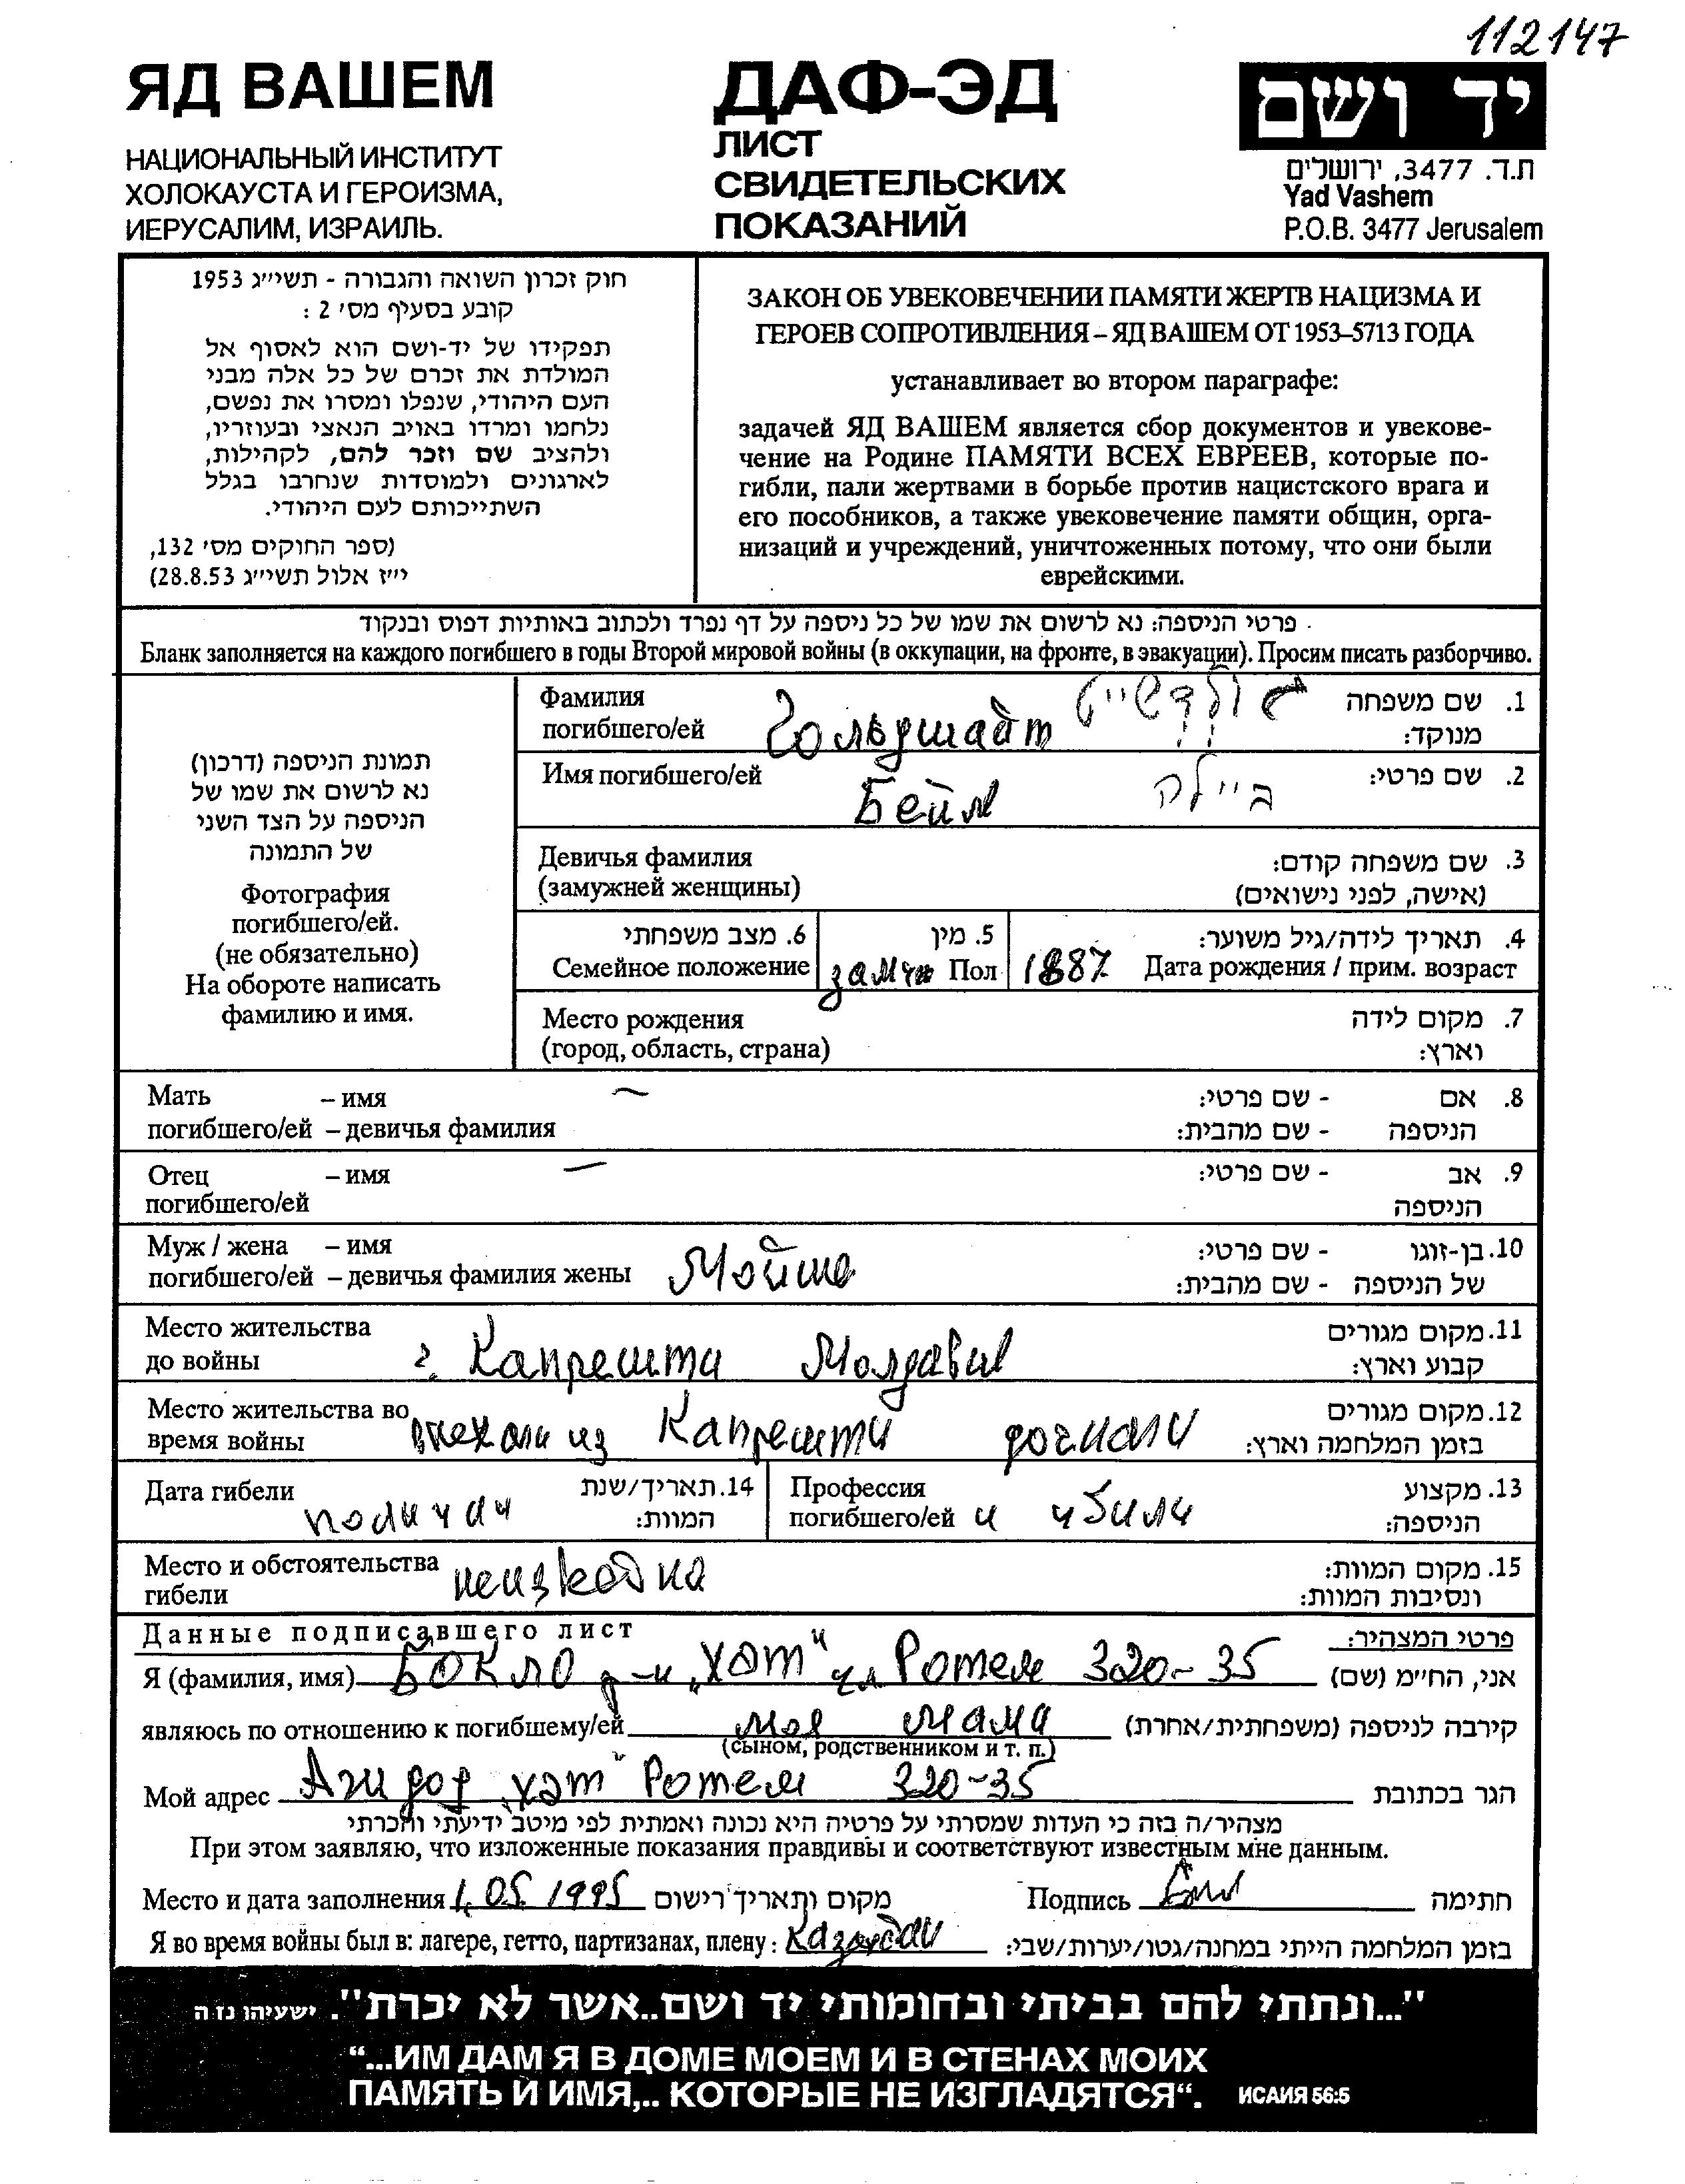 112147
ЯД ВАШЕМ
НАЦИОНАЛЬНЫЙ ИНСТИТУТ
ХОЛОКАУСТА И ГЕРОИЗМА,
ИЕРУСАЛИМ, ИЗРАИЛЬ.
ДАФ-ЭД
ЛИСТ
СВИДЕТЕЛЬСКИХ
ПОКАЗАНИЙ
יד ושם
ת.ד. 3477, ירושלים
Yad Vashem
P.O.B. 3477 Jerusalem
חוק זכרון השואה והגבורה - תשי״ג 1953
קובע בסעיף מס׳ 2 :
תפקידו של יד-ושם הוא לאסוף אל
המולדת את זכרם של כל אלה מבני
העם היהודי, שנפלו ומסרו את נפשם,
נלחמו ומרדו באויב הנאצי ובעוזריו,
ולהציב שם וזכר להם, לקהילות,
לארגונים ולמוסדות שנחרבו בגלל
השתייכותם לעם היהודי.
(ספר החוקים מס׳ 132,
י״ז אלול תשי״ג 28.8.53)
ЗАКОН ОБ УВЕКОВЕЧЕНИИ ПАМЯТИ ЖЕРТВ НАЦИЗМА И
ГЕРОЕВ СОПРОТИВЛЕНИЯ – ЯД ВАШЕМ ОТ 1953–5713 ГОДА
устанавливает во втором параграфе:
задачей ЯД ВАШЕМ является сбор документов и увекове-
чение на Родине ПАМЯТИ ВСЕХ ЕВРЕЕВ, которые по-
гибли, пали жертвами в борьбе против нацистского врага и
его пособников, а также увековечение памяти общин, орга-
низаций и учреждений, уничтоженных потому, что они были
еврейскими.
פרטי הניספה: נא לרשום את שמו של כל ניספה על דף נפרד ולכתוב באותיות דפוס ובנקוד
Бланк заполняется на каждого погибшего в годы Второй мировой войны (в оккупации, на фронте, в эвакуации). Просим писать разборчиво.
תמונת הניספה (דרכון)
נא לרשום את שמו של
הניספה על הצד השני
של התמונה
Фотография
погибшего/ей.
(не обязательно)
На обороте написать
фамилию и имя.
Фамилия
погибшего/ей Гольдшайт גולדשייט
1. שם משפחה
מנוקד:
Имя погибшего/ей Бейл ביילה 2. שם פרטי:
Девичья фамилия
(замужней женщины)
3. שם משפחה קודם:
(אישה, לפני נישואים)
6. מצב משפחתי
Семейное положение
5. מין
замуж Пол
4. תאריך לידה/גיל משוער:
1887 Дата рождения / прим. возраст
Место рождения
(город, область, страна)
7. מקום לידה
וארץ:
Мать – имя —
погибшего/ей – девичья фамилия
8. אם - שם פרטי:
הניספה - שם מהבית:
Отец – имя —
погибшего/ей
9. אב - שם פרטי:
הניספה
Муж / жена – имя
погибшего/ей – девичья фамилия жены Мойше
10. בן-זוגו - שם פרטי:
של הניספה - שם מהבית:
Место жительства
до войны г. Капрешти Молдавия
11. מקום מגורים
קבוע וארץ:
Место жительства во
время войны из Капрешти догнали
12. מקום מגורים
בזמן המלחמה וארץ:
Дата гибели полицаи
14. תאריך/שנת
המוות:
Профессия
погибшего/ей и убили
13. מקצוע
הניספה:
Место и обстоятельства
гибели неизвестно
15. מקום המוות:
ונסיבות המוות:
Данные подписавшего лист
פרטי המצהיר:
Я (фамилия, имя) Бокло р-н „Хэт“ ул Ротем 320-35 אני, הח״מ (שם)
являюсь по отношению к погибшему/ей моя мама קירבה לניספה (משפחתית/אחרת)
(сыном, родственником и т. п.)
Мой адрес Ашдод „хэт“ Ротем 320-35 הגר בכתובת
מצהיר/ה בזה כי העדות שמסרתי על פרטיה היא נכונה ואמתית לפי מיטב ידיעתי והכרתי
При этом заявляю, что изложенные показания правдивы и соответствуют известным мне данным.
Место и дата заполнения 1.05.1995 מקום ותאריך רישום Подпись חתימה
Я во время войны был в: лагере, гетто, партизанах, плену: בזמן המלחמה הייתי במחנה/גטו/יערות/שבי:
"...ונתתי להם בביתי ובחומותי יד ושם..אשר לא יכרת". ישעיהו נז ה
“...ИМ ДАМ Я В ДОМЕ МОЕМ И В СТЕНАХ МОИХ
ПАМЯТЬ И ИМЯ,.. КОТОРЫЕ НЕ ИЗГЛАДЯТСЯ“. ИСАИЯ 56:5